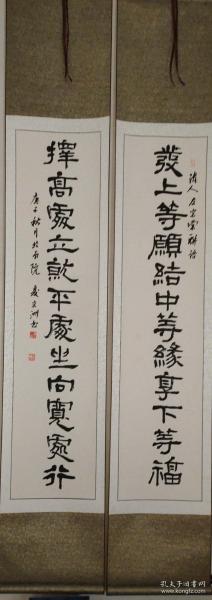 發上等願結中等緣享下等福
清人左宗棠聯語
擇高處立就平處坐向寬處行
庚子秋月於石院 夏文洲書
孔夫子旧书网